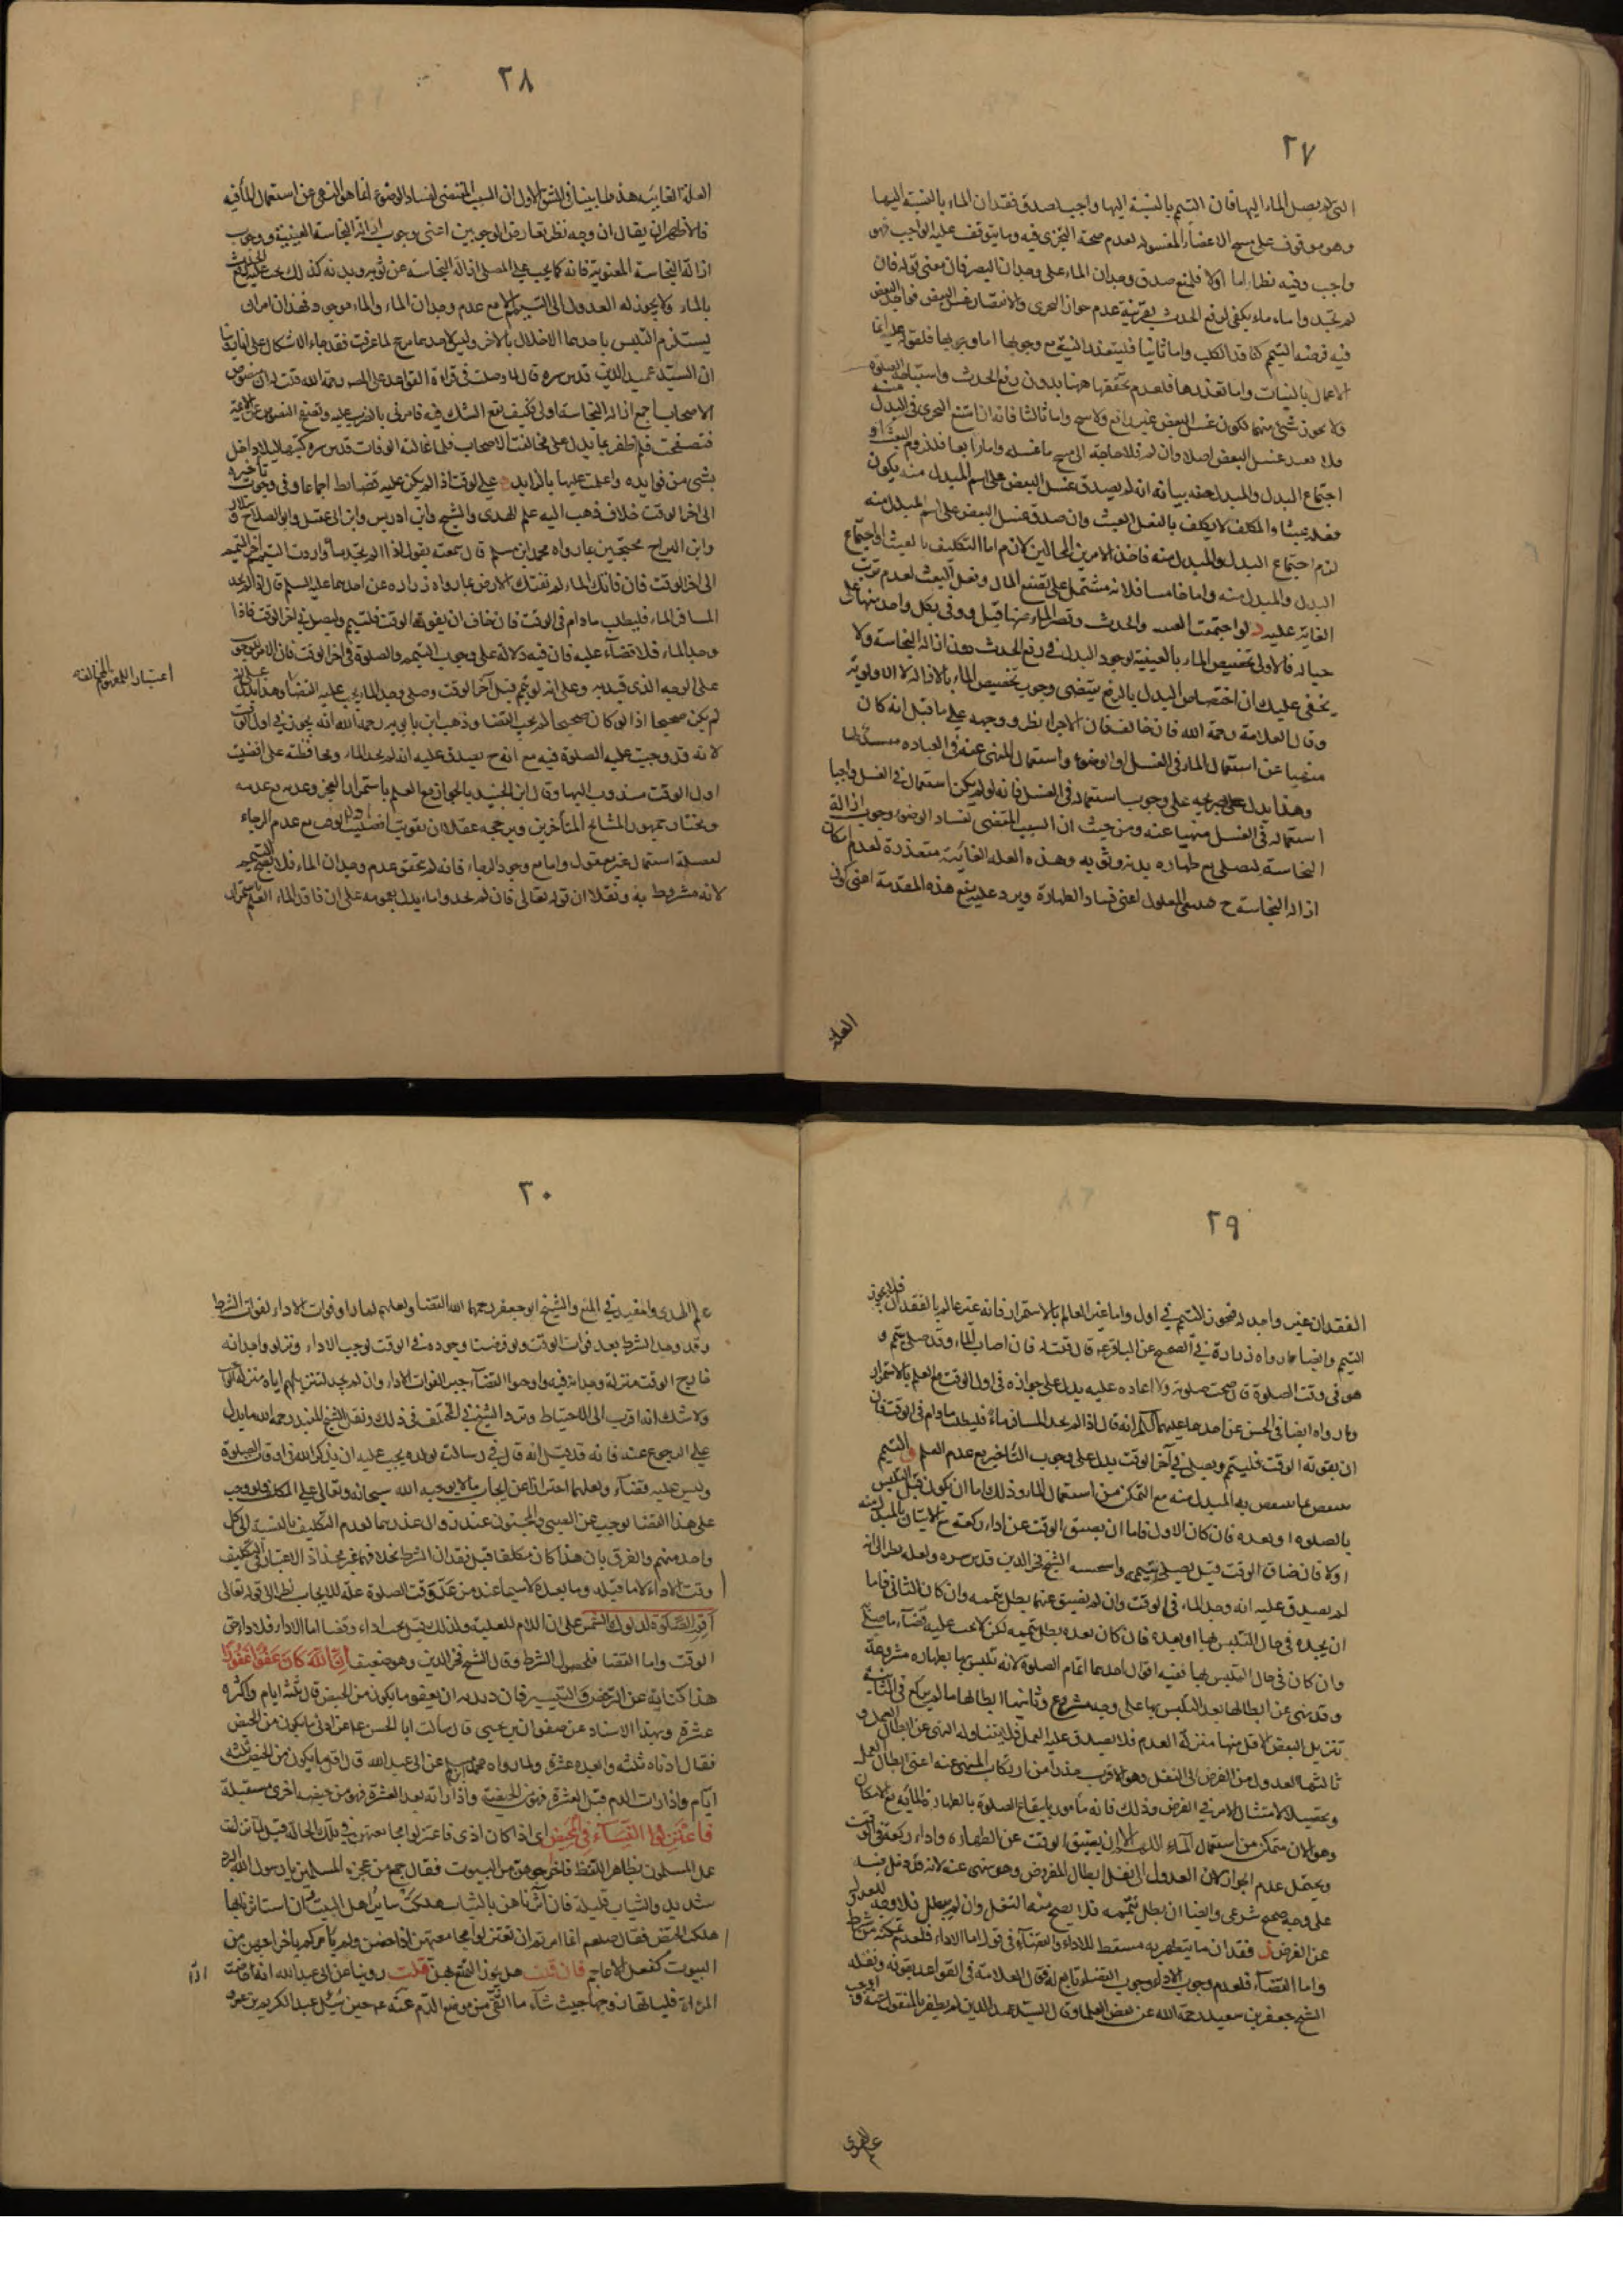 ٢٧
التي لم يصل الماء اليها فان التيمم بالنسبة اليها واجب لصدق فقدان الماء بالنسبة اليها
وهو موقوف على مسح الاعضاء المغسوله لعدم صحة التجزى فيه وما يتوقف عليه الواجب فهو
واجب وفيه نظر اما اولا فلمنع صدق وجدان الماء على وجدان اليسير فان معنى قوله فان
لم تجدوا ماء ماء يكفى لرفع الحدث بقرينة عدم جواز التحرى والاقتصار غسل البعض فواجد البعض
فيه فرضه التيمم كفاقد الكل واما ثانيا فليتعذر النية مع وجوبها اما وجوبها فلقوله انما
الاعمال بالنيات واما تعذرها فلعدم تحققها ههنا بدون رفع الحدث واستباحة الصلوة
ولا يجوز شئ منهما لكون غسل البعض غير رافع ولا مبيح واما ثالثا فانه ان امتنع التحرى في المبدل منه
فلا يعد غسل البعض اصلا وان لم فلا حاجة الى مسح ما غسله واما رابعا فلزوم العبث او
اجتماع البدل والمبدل منه بيانه انه لم يصدق غسل البعض على اسم المبدل منه يكون
فعله عبثا والمكلف لا يكلف بالفعل العبث وان صدق غسل البعض على اسم المبدل منه
لزم اجتماع البدل والمبدل منه فاحد الامرين المحالين لازم اما التكليف بالعبث او اجتماع
البدل والمبدل منه واما خامسا فلانه مشتمل على تضييع المال وفعل العبث لعدم ترتب
الفايدة عليه لو اجتمعت والحدث وقصر الماء عنهما قيل ووفى بكل واحد منهما على
حياله فالاولى تخصيص الماء بالعينية لوجود البدل في رفع الحدث دون ازالة النجاسة ولا
يخفى عليك ان اختصاص البدل بالرفع يقتضى وجوب تخصيص الماء بالازالة لا الاولوية
وقال العلامة رحمة الله فان خالف فان الاجزاء نظر ووجهه على ما قيل انه كان
منهيا عن استعمال الماء في الغسل او الوضوء واستعمال المنهى عنه في العباده
وهذا يدل على وجوب استعماله في الغسل فانه لو لم يكن استعماله في الغسل واجبا
استعماله في الغسل منهيا عنه ومن حيث ان السبب المقتضى لفساد الوضوء وجوب ازالة
النجاسة ليصلى مع طهاره بدنه وثوبه وهذه العلة الغائية متعذرة لعدم امكان
ازالة النجاسة ح المعلول لعنى فساد الطهارة ويرد عليه منع هذه المقدمة اعنى كون
العلة
٢٨
العلة الغائيه هذه لما بينا في الشق الاول ان السبب المقتضى لفساد الوضوء انما هو النهى عن استعمال الماء فيه
فالاظهر ان يقال ان وجه نظر تعارض الوجوبين اعنى وجوب ازالة النجاسة العينية ووجوب
ازالة النجاسة المعنوية فانه كما يجب على المصلى ازالة النجاسة عن ثوبه وبدنه كذلك يجب عليه رفع الحدث
بالماء ولا يجوز له العدول الى التيمم الا مع عدم وجدان الماء والماء موجود فهذان امران
يستلزم التلبس باحدهما الاخلال بالاخر وليس لاحدهما مرجح لما عرفت فقد جاء الاشكال
ان السيد عميد الدين قدس سره قال لما وصلت في قراءة القواعد على المصنف رحمة الله قلت له ان نصوص
الاصحاب اجمع ازالة النجاسة اولى فكيف يقع الشك فيه فامرنى بالضرب عليه وتصفح النصوص
فتصفحت فلم اظفر بما يدل على مخالفة الاصحاب
بشئ من فوايده واعلمت عليها بالزايد على الوقت اذا لم يكن عليه قضا بط اجماعا وفي وجوب تاخيره
الى اخر الوقت خلاف فذهب اليه علم الهدى والشيخ وابن ادريس وابن ابى عقيل وابو الصلاح وسلار
وابن البراج محتجين بما رواه محمد ابن مسلم قال سمعته يقول اذا لم تجد ماء واردت التيمم فاخر التيمم
الى اخر الوقت فان فاتك الماء لم تفتك الارض بما رواه زراره عن احدهما عليه السلم قال اذا لم يجد
المسافر الماء فليطلب ما دام في الوقت فان خاف ان يفوته الوقت فليتيمم وليصل في اخر الوقت فاذا
وجد الماء فلا قضاء عليه فان فيه دلالة على وجوب التيمم والصلوة في اخر الوقت فان الامر للوجوب
على الوجه الذى قيد به وعلى انه لو تيمم قبل آخر الوقت وصلى وجد الماء يجب عليه القضاء وهذا يدل على انه
لم يكن صحيحا اذ لو كان صحيحا لم يجب القضا وذهب ابن بابويه رحمه الله انه يجوز في اول الوقت
لانه قد وجبت عليه الصلوة فيه مع انه ح يصدق عليه انه لم يجد الماء ومحافظة على افضليت
اول الوقت مندوب اليها وقال ابن الجنيد بالجواز مع العلم باستمرار العجز وعدمه مع عدمه
ومختار جمهور المشايخ المتأخرين ويرجحه عقلا ان تفويت افضليت اول الوقت مع عدم الرجاء
لمصلحة استعمال غير معقول واما مع وجود الرجاء فانه لم يتحقق عدم وجدان الماء فلا يصح التيمم
لانه مشروط به ونقلا ان قوله تعالى فان لم تجدوا ماء يدل بعمومه على ان فاقد الماء
اعتبار اللمعنى المخالفة
٢٩
الفقدان غير واجد له فيجوز التيمم في اول واما غير العالم بالاستمرار فانه غير عالم بالفقدان فلا يجوز
التيمم وايضا ما رواه زرارة في الصحيح عن الباقر ع قال قلت له فان اصاب الماء وقد صلى بتيمم و
هو في وقت الصلوة قال تمت صلوته ولا اعاده عليه يدل على جوازه في اول الوقت مع العلم بالاستمرار
وما رواه ايضا في الحسن عن احدهما عليهما السلم انه قال اذا لم يجد المسافر ماء فليطلب ما دام في الوقت فان
ان يفوته الوقت فليتيمم ويصلى في آخر الوقت يدل على وجوب التأخير مع عدم العلم و التيمم
ينتقض بما ينتقض به المبدل منه مع التمكن من استعمال الماء وذلك اما ان يكون قبل التلبس
بالصلوة او بعده فان كان الاول فاما ان يضيق الوقت عن اداء ركعة مع الاتيان بالمبدل منه
او لا فان ضاق الوقت قيل يصلى بتيممه واستحسنه الشيخ فخر الدين قدس سره ولعله نظر الى انه
لم يصدق عليه انه وجد الماء في الوقت وان لم يضيق عنهما بطل تيممه وان كان الثانى فاما
ان يجده في حال التلبس بها او بعده فان كان بعده بطل تيممه لكن لا يجب عليه قضاء ما صلى
وان كان في حال التلبس بها ففيه اقوال احدها اتمام الصلوة لانه تلبس بها بطهاره مشروعة
وقد نهى عن ابطالها بعد التلبس بها على وجه مشروع وثانيها ابطالها ما لم يركع في الثانية
تنزيل البعض الاقل منها منزلة العدم فلا يصدق عليه العمل فلا يتناوله النهى عن ابطال العمل و
ثالثها العدول من الفرض الى النفل وهو الاقرب حذرا من ارتكاب المنهى عنه اعنى ابطال العمل
وتحصيلا لامتثال الامر في الفرض وذلك فانه مأمور بايقاع الصلوة بالطهارة المائية مع الامكان
وهو الان متمكن من استعمال الماء اللهم الا ان يضيق الوقت عن الطهاره واداء ركعة في الوقت
ويحتمل عدم الجواز لان العدول الى نفل ابطال للمفروض وهو منهى عنه لانه قد دخل فيه
على وجه صحيح شرعى وايضا ان بطل تيممه فلا يصح منه التنفل وان لم يبطل فلا وجه للعدول
عن الفرض فقدان ما يتطهر به مسقط للاداء والقضاء في قول اما الاداء فلعدم تمكنه من شرط
واما القضاء فلعدم وجوب الاداء ووجوب القضاء تابع له فقال العلامة في القواعد بقوته ونقله
الشيخ جعفر بن سعيد رحمة الله عن بعض العلما وقال السيد عميد الدين لم يظفر بالمنقول عنه واوجب
علم الهدى
٣٠
علم الهدى والمفيد في المقنع والشيخ ابو جعفر رحمهما الله القضا ولعلهم لما راوا فوات الاداء لفوات الشرط
وقد وجد الشرط بعد فوات الوقت ولو فرضت وجوده في الوقت لوجب الاداء ونزلوا وجدانه
خارج الوقت منزلة وجدانه فيه واوجبوا القضاء جبرا لفوات الاداء وان لم يجد لتنزيلهم اياه منزلة
ولا شك انه اقرب الى الاحتياط وتردد الشيخ في المختلف في ذلك ونقل الشيخ المفيد رحمه الله ما يدل
على الرجوع عنه فانه قد نقل انه قال في رسالته لولده يجب عليه ان يذكر الله في اوقات الصلوة
وليس عليه قضاء ولعلهما احترازا عن ايجاب ما لا يوجبه الله سبحانه وتعالى على المكلف ولو وجب
على هذا القضا لوجب عن الصبى والمجنون عند زوال عذرهما لعدم التكليف بالنسبة الى كل
واحد منهم والفرق بان هذا كان مكلفا قبل فقدان الشرط بخلافهما غير مجد اذ الاعتبار في التكليف
وقت الاداء لا ما قبله وما بعده لا سيما عند من عد وقت الصلوة علة للايجاب نظرا الى قوله تعالى
اقم الصلوة لدلوك الشمس على ان اللام للعلية ولذلك قيل يجب اداء وقضا اما الاداء فلادراك
الوقت واما القضا فلحصول الشرط وقال الشيخ فخر الدين وهو ضعيف ان الله كان عفوا غفورا
هذا كناية عن الترخص والتيسير فان ديدنه ان يعفو ما يكون من الحيض قال ثلثه ايام واكثره
عشرة وبهذا الاسناد عن صفوان بن يحيى قال سالت ابا الحسن ع عن ادنى ما يكون من الحيض
فقال ادناه ثلثه وابعده عشرة ولما رواه محمد بن مسلم عن ابى عبد الله قال اقل ما يكون من الحيض ثلثه
ايام واذا رات الدم قبل العشرة فهو من الحيضة واذا راته بعد العشرة فهو من حيضه اخرى مستقبلة
فاعتزلوا النساء في المحيض اى اذا كان اذى فاعتزلوا مجامعتهن في تلك الحالة قيل لما نزلت
عمل المسلمون بظاهر اللفظ فاخرجوهن من البيوت فقال جمع من عجزه المسلمين يا رسول الله البرد
شديد والثياب قليلة فان آثرناهن بالثياب هلكت ساير اهل البيت وان استاثرنا بها
هلكت الحيض فقال صلعم انما امرتم ان تعتزلوا مجامعتهن اذا حضن ولم يأمركم باخراجهن من
البيوت كفعل الاعاجم فان قلت هل يجوز التمتع بهن قلت روينا عن ابى عبد الله انه
المرءاة فلياتها زوجها حيث شاء ما اتقى موضع الدم عنه ع حين سئل عبد الكريم بن عمرو
اذا